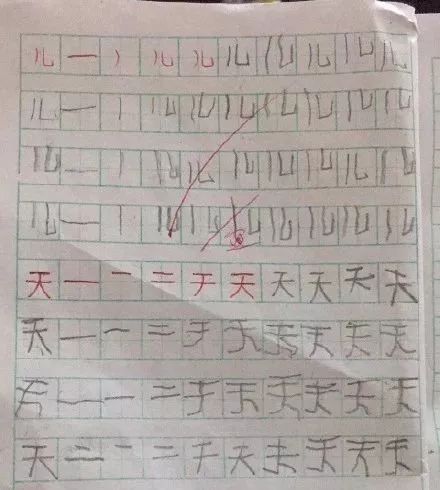 儿 一 丿 儿 儿 儿 儿 儿 儿 儿
儿 一 丿 儿 儿 儿 儿 儿 儿 儿
儿 一 丿 儿 儿 儿 儿 儿 儿 儿
儿 一 丿 儿 儿 儿 儿 儿 儿
天 一 一 二 于 天 天 天 天 天
天 一 一 二 于 天 天 天 天
天 一 一 二 于 天 天 天 天 天
天 二 一 二 于 天 天 天 天 天